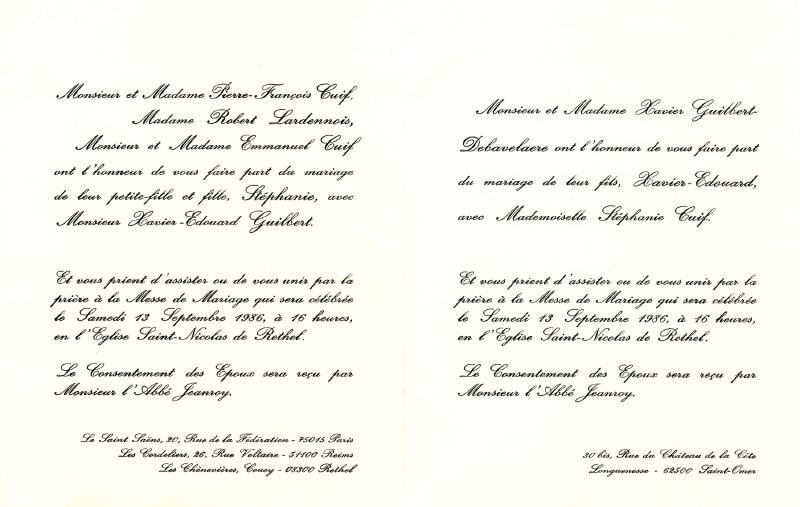 Monsieur et Madame Pierre-François Cuif,
Madame Robert Lardennois,
Monsieur et Madame Emmanuel Cuif
ont l'honneur de vous faire part du mariage
de leur petite-fille et fille, Stéphanie, avec
Monsieur Xavier-Edouard Guilbert.
Et vous prient d'assister ou de vous unir par la
prière à la Messe de Mariage qui sera célébrée
le Samedi 13 Septembre 1986, à 16 heures,
en l'Eglise Saint-Nicolas de Rethel.
Le Consentement des Epoux sera reçu par
Monsieur l'Abbé Jeanroy.
Le Saint Saëns, 20, Rue de la Fédération - 75015 Paris
Les Cordeliers, 26, Rue Voltaire - 51100 Reims
Les Chènevières, Coucy - 08300 Rethel
Monsieur et Madame Xavier Guilbert-
Debavelaere ont l'honneur de vous faire part
du mariage de leur fils, Xavier-Edouard,
avec Mademoiselle Stéphanie Cuif.
Et vous prient d'assister ou de vous unir par la
prière à la Messe de Mariage qui sera célébrée
le Samedi 13 Septembre 1986, à 16 heures,
en l'Eglise Saint-Nicolas de Rethel.
Le Consentement des Epoux sera reçu par
Monsieur l'Abbé Jeanroy.
30 bis, Rue du Château de la Côte
Longuenesse - 62500 Saint-Omer